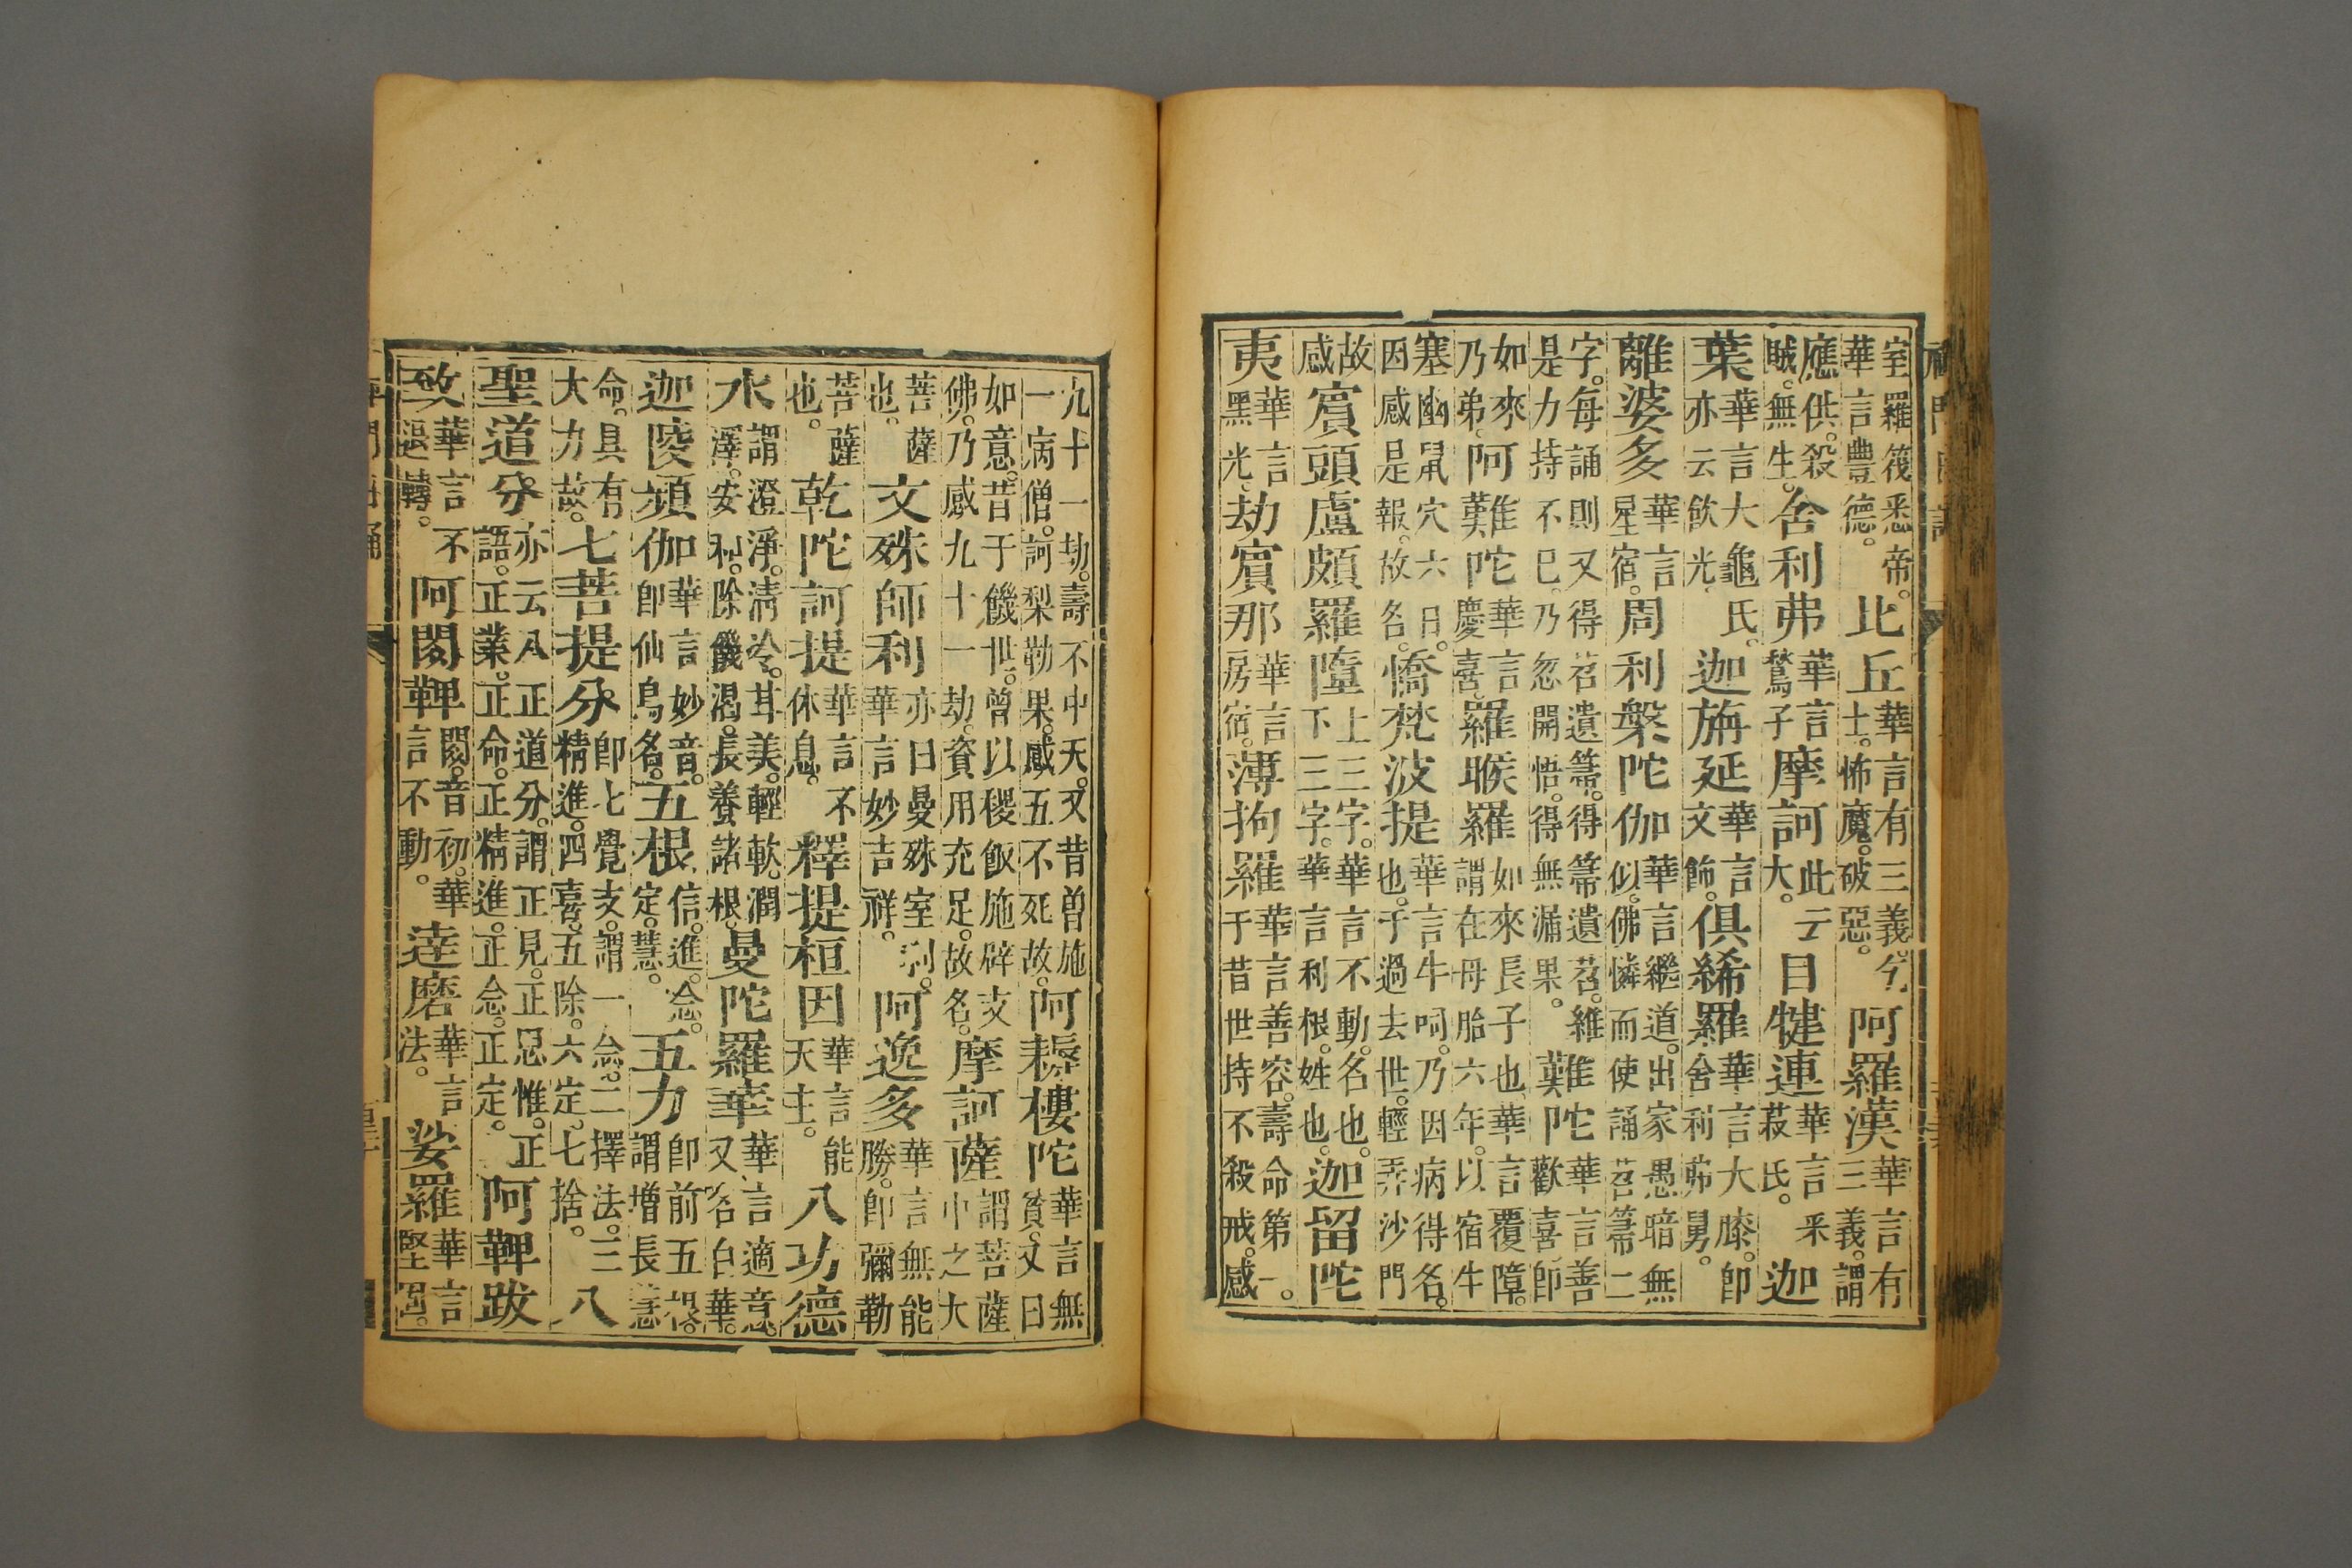 禪門日誦
室羅筏悉帝。華言豐德。比丘華言有三義。乞士。怖魔。破惡。阿羅漢華言有三義。謂
應供。殺賊。無生。舍利弗華言鶖子摩訶此云大。目犍連華言采菽氏。迦
葉華言大龜氏。亦云飲光迦旃延華言文飾。俱絺羅華言大膝。即舍利弗舅。
離婆多華言星宿。周利槃陀伽華言繼道。出家愚暗無似。佛憐而使誦苕箒二
字。每誦則又得苕遺箒。得箒遺苕。維是力持不已。乃忽開悟。得無漏果。難陀華言善歡喜即
如來乃弟。阿難陀華言慶喜。羅睺羅如來長子也。華言覆障。謂在母胎六年。以宿生
塞幽鼠穴六日。因感是報。故名。憍梵波提華言牛呞。乃因病得名。也。于過去世。輕弄沙門
故感賓頭盧頗羅墮上三字。華言不動。名也。下三字。華言利根。姓也。迦留陀
夷華言黑光。劫賓那華言房宿。薄拘羅華言善容。壽命第一。于昔世持不殺戒。感
九十一劫。壽不中夭。又昔曾施一病僧。訶梨勒果。感五不死故。阿耨樓陀華言無貧。又曰
如意。昔于饑世。曾以稷飯施辟支佛。乃感九十一劫。資用充足。故名。摩訶薩謂菩薩中之大
菩薩也。文殊師利亦曰曼殊室利。華言妙吉祥。阿逸多華言無能勝。即彌勒
菩薩也。乾陀訶提華言不休息。釋提桓因華言能天主。八功德
水謂澄淨。清冷。甘美。輕軟。潤澤。安和。除饑渴。長養諸根。曼陀羅華華言適意。又名白華。
迦陵頻伽華言妙音。即仙鳥名。五根信。進。念。定。慧。五力即前五根。謂增長慧
命。具有大力故。七菩提分即七覺支。謂一念。二擇法。三精進。四喜。五除。六定。七捨。八
聖道分亦云八正道分。謂正見。正思惟。正語。正業。正命。正精進。正念。正定。阿鞞跋
致華言不退轉。阿閦鞞閦。音初。華言不動。達磨華言法。娑羅華言堅固。